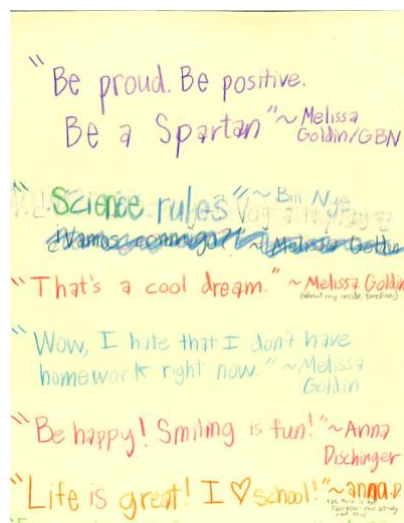 "Be proud. Be positive.
Be a Spartan" ~ Melissa
Goldin/GBN
"Science rules" ~ Bill Nye
¿Vamos conmigo?! ~ Melissa Goldin
"That's a cool dream." ~ Melissa Goldin
"Wow, I hate that I don't have
homework right now." ~ Melissa
Goldin
"Be happy! Smiling is fun!" ~ Anna
Dischinger
"Life is great! I ♡ school!" ~ anna D.